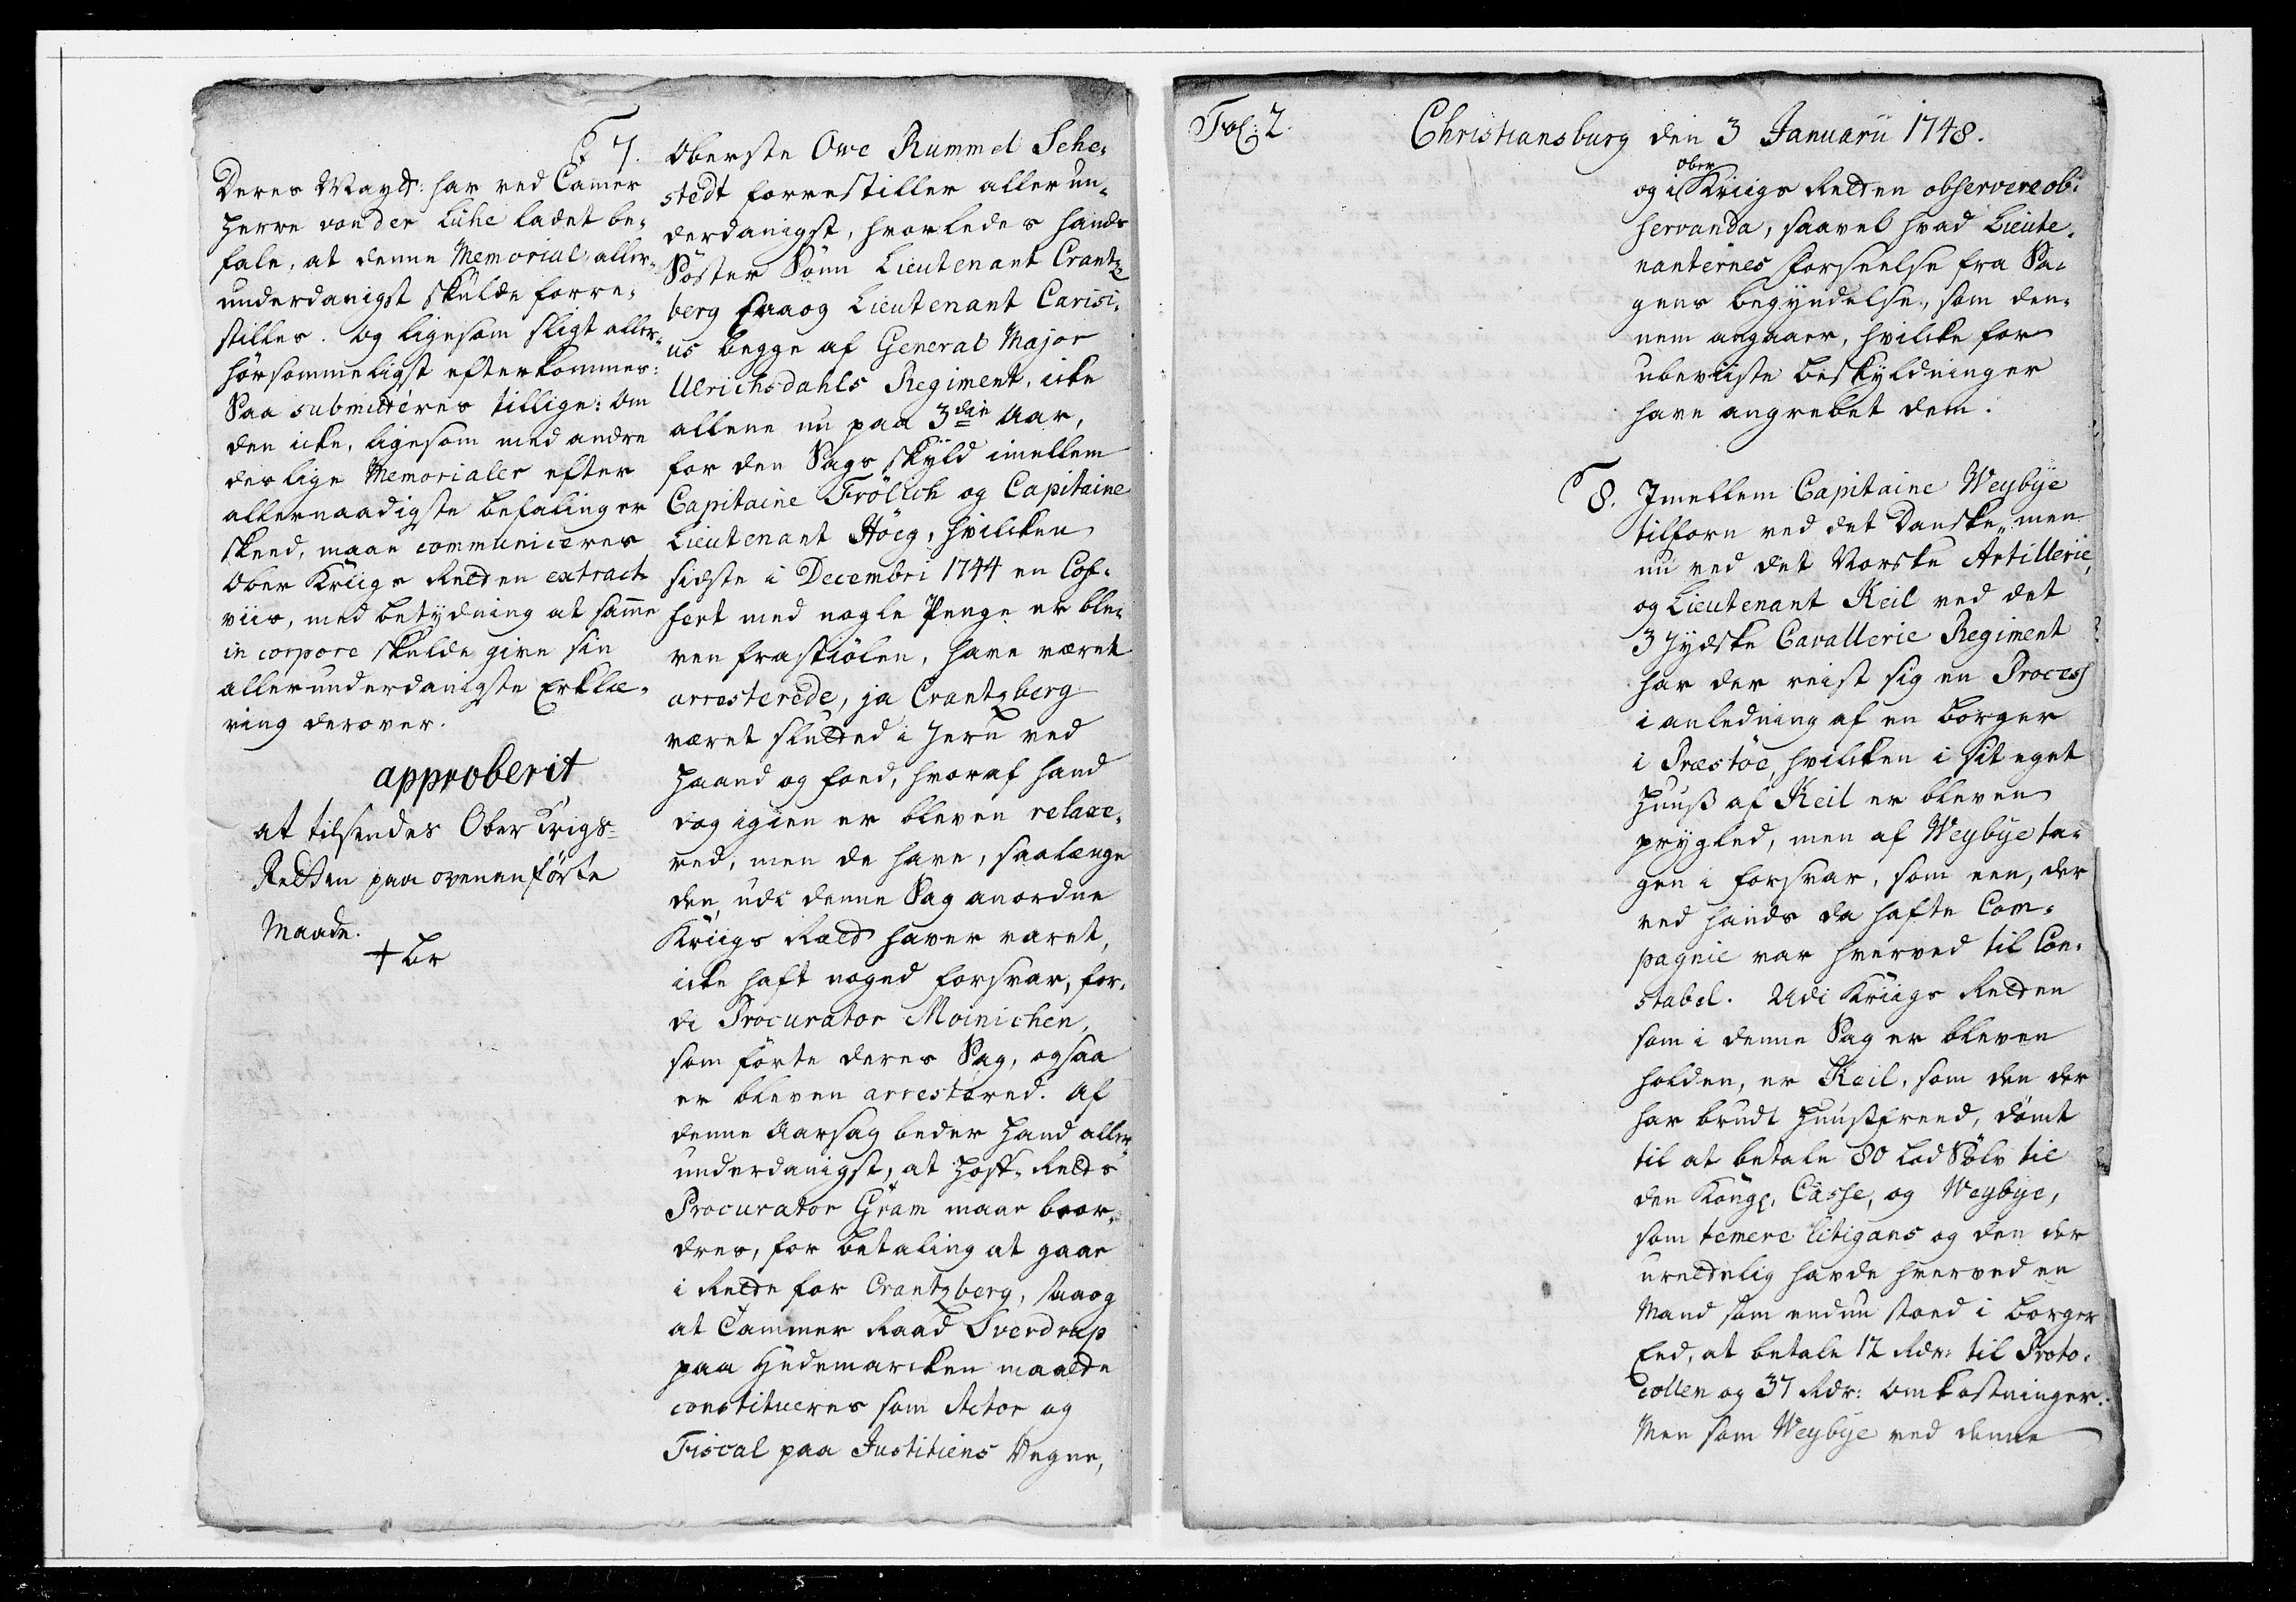 7.
Deres Mayst: har ved Camer
Herre von der Lühe ladet be-
fale, at denne Memorial aller-
underdanigst skulde forre-
stilles. Og ligesom sligt aller-
hørsommeligst efterkommes:
Saa submitteres tillige: Om
den icke, ligesom med andre
deslige Memorialer efter
allernaadigste befalinger
skeed, maae communiceres
Ober Kriigs Retten extract-
viis, med betydning at samme
in corpore skulde give sin
allerunderdanigste Erklæ-
ring derover.
approberit
at tilsendes Ober Krigs-
Retten paa ovenanførte
Maade.
Oberste Owe Rummel Sehe-
stedt forrestiller allerun-
derdanigst, hvorledes hands
Söster Sönn Lieutenant Crantz-
berg saaog Lieutenant Carisi-
us begge af General Major
Ulrichsdahls Regiment, icke
allene nu paa 3die Aar,
for den Sags skyld imellem
Capitaine Frölich og Capitaine
Lieutenant Höeg, hvilcken
sidste i Decembri 1744 en Cof-
fert med nogle Penge er ble-
ven frastiølen, have været
arresterede, ja Crantzberg
været slutted i Jern ved
Haand og foed, hvoraf hand
dog igien er bleven relaxe-
red, men de have, saalænge
den udi denne Sag anordne
Kriigs Rætt haver varet,
icke haft noged forsvar, for-
di Procurator Moinichen,
som förte deres Sag, ogsaa
er bleven arrestered. Af
denne Aarsag beder Hand aller-
underdanigst, at Hoff-Retts
Procurator Gram maae beor-
dres, for betaling at gaae
i Rette for Crantzberg, saaog
at Cammer Raad Sverdrup
paa Hedemarcken maatte
constitueres som Actor og
Fiscal paa Justitiens Vegne,
Fol: 2.
Christiansburg den 3 Januarii 1748.
ober
og i Kriigs Retten observere ob-
servanda, saavel hvad Lieute-
nanternes forseelse fra Sa-
gens begyndelse, som den-
nem angaaer, hvilcke for
ubeviiste beskyldninger
have angrebet dem.
8. Imellem Capitaine Weybye
tilforn ved det Danske, men
nu ved det Norske Artillerie,
og Lieutenant Keil ved det
3 Jydske Cavallerie Regiment
har der reist sig en Process
i anledning af en borger
i Præstöe, hvilcken i sit eget
Huuß af Keil er bleven
pryglet, men af Weybye ta-
gen i forsvar, som een, der
ved hands da hafte Com-
pagnie var hverved til Con-
stabel. Udi Kriigs Retten
som i denne Sag er bleven
holden, er Keil, som den der
har brudt Huusfreed, dömt
til at betale 80 Lod Sölv til
den Kongl. Casse, og Weybye,
som temere litigans og den der
uretvelig havde hverved en
Mand som endnu stoed i borger
Eed, at betale 12 Rdr: til Proto-
collen og 37 Rdr: Omkostninger.
Men som Weybye ved denne